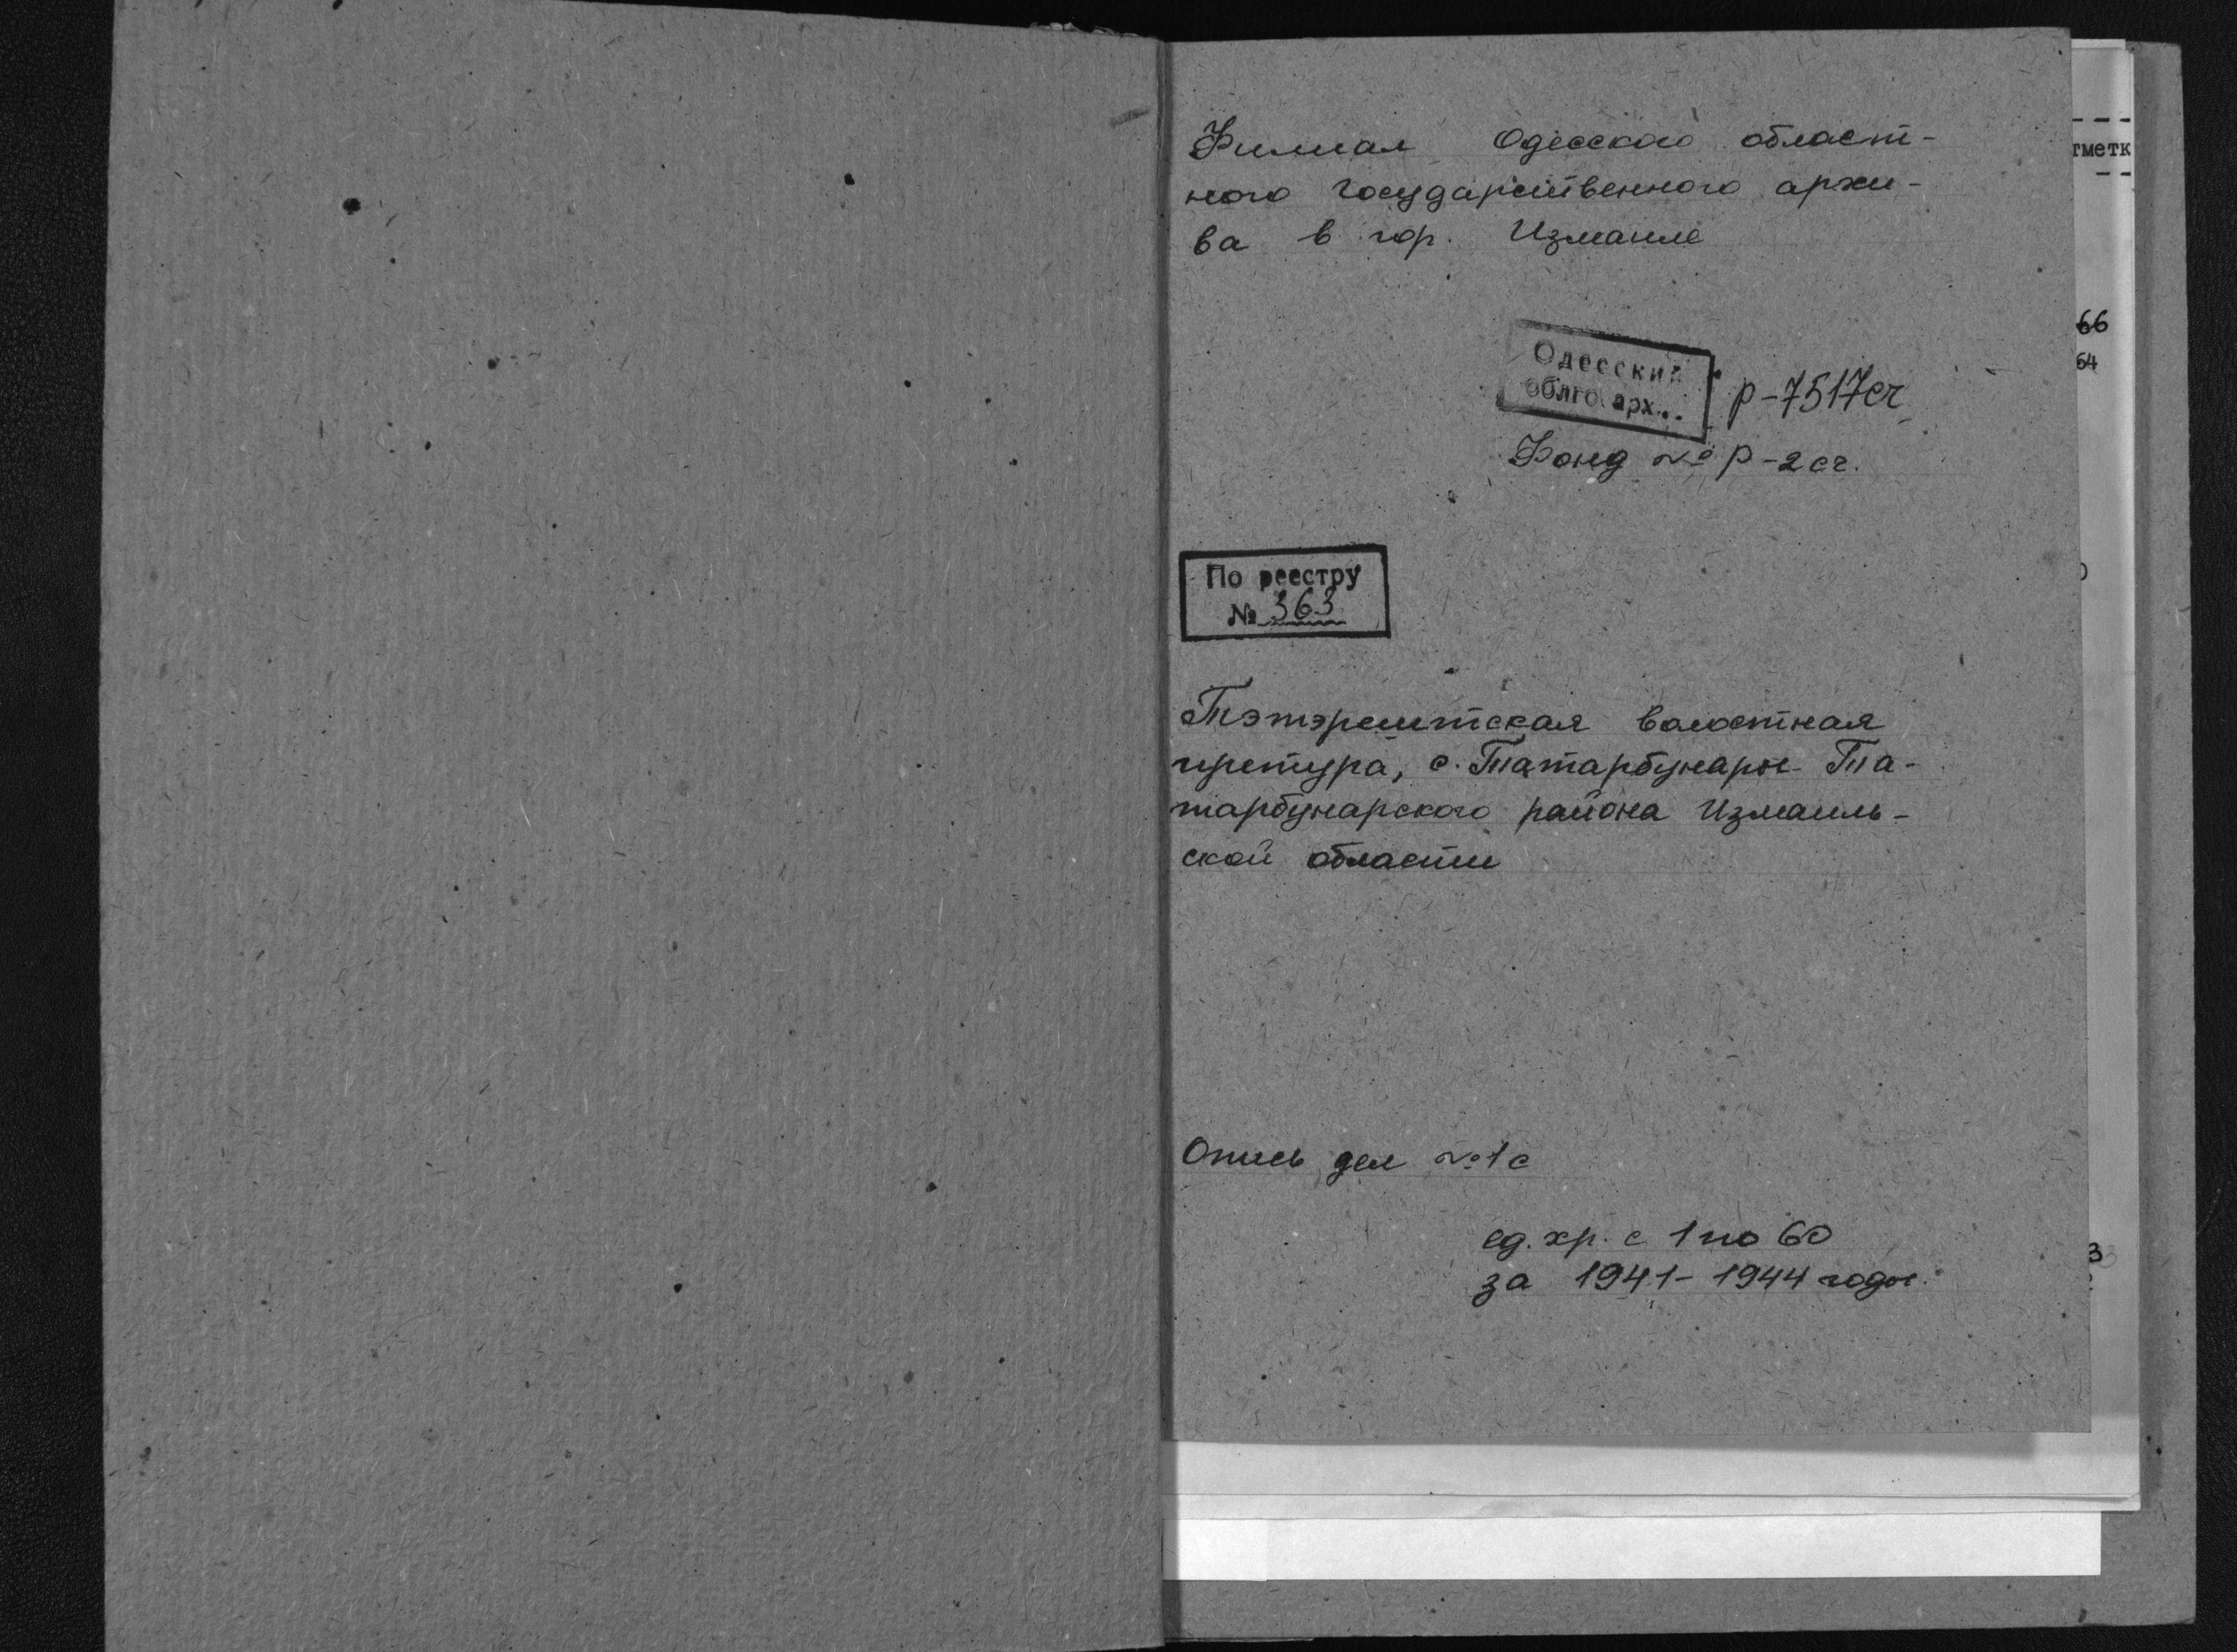 Филиал Одесского област-
ного государственного архи-
ва в гор. Измаиле
Одесский
облго. арх...
р-7517сч
Фонд № р-2сч.
По реестру
№ 363
Тэтэрештская волостная
претура, с. Татарбунары Та-
тарбунарского района Измаиль-
ской области
Опись дел №1с
ед. хр. с 1 по 60
за 1941-1944 годы.
тметк
66
64
3